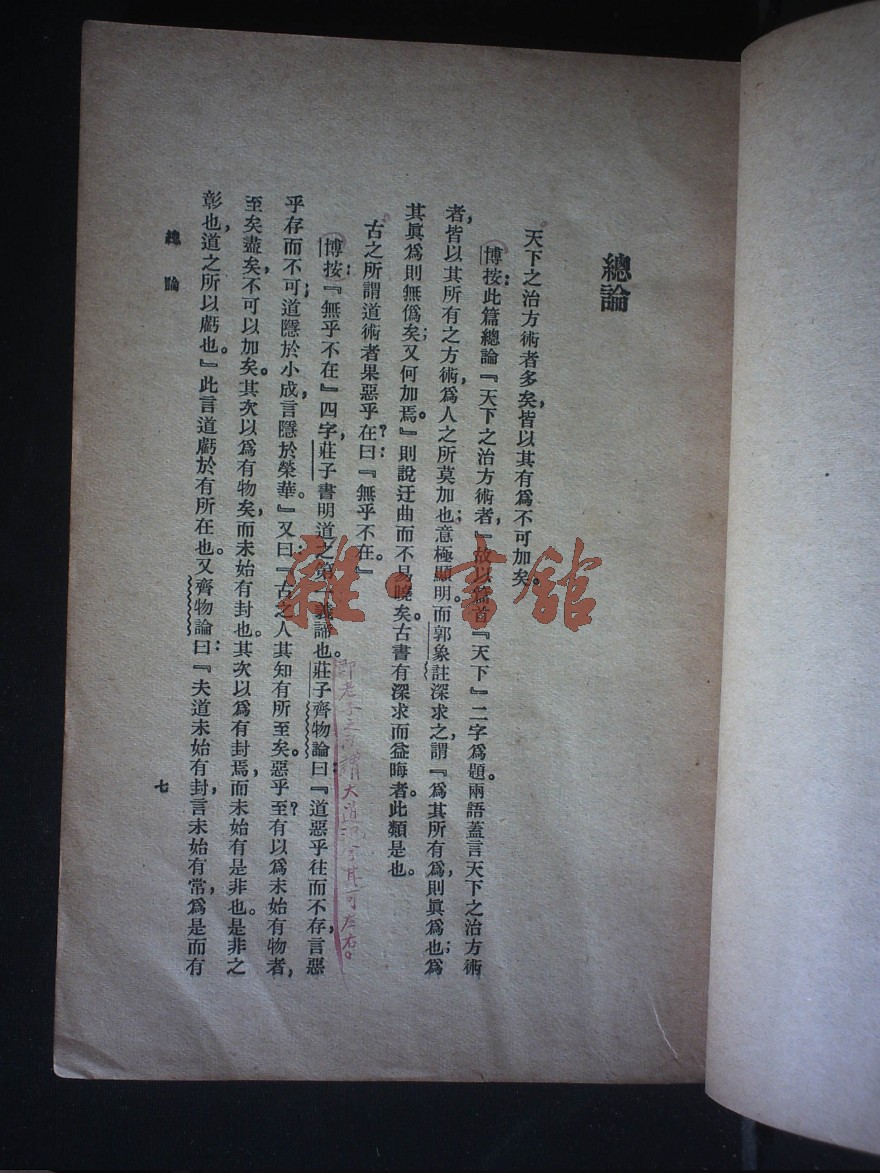 總論
天下之治方術者多矣，皆以其有爲不可加矣。
博按：此篇總論『天下之治方術者，』故以篇首『天下』二字爲題。兩語蓋言天下之治方術
者，皆以其所有之方術，爲人之所莫加也；意極顯明。而郭象註深求之，謂『爲其所有爲，則眞爲也；爲
其眞爲則無僞矣；又何加焉。』則說迂曲而不易曉矣。古書有深求而益晦者。此類是也。
古之所謂道術者果惡乎在？曰：『無乎不在。』
即老子之所謂大道氾兮其可左右。
博按：『無乎不在』四字，莊子書明道之第一義諦也。莊子齊物論曰：『道惡乎往而不存，言惡
乎存而不可；道隱於小成，言隱於榮華。』又曰：『古之人其知有所至矣。惡乎至？有以爲未始有物者，
至矣盡矣，不可以加矣。其次以爲有物矣，而未始有封也。其次以爲有封焉，而未始有是非也。是非之
彰也，道之所以虧也。』此言道虧於有所在也。又齊物論曰：『夫道未始有封，言未始有常，爲是而有
總論
七
雜·書館